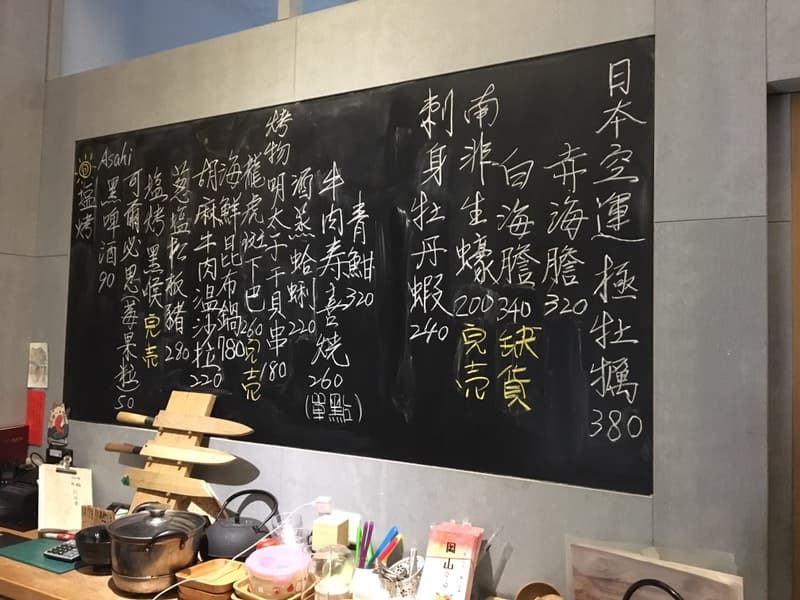 日本空運 極牡蠣 380
赤海膽 320
白海膽 340 缺貨
南非生蠔 200 完売
刺身牡丹蝦 240
青魽 320
牛肉寿喜燒 260 (單點)
酒蒸蛤蜊 220
烤物 明太子干貝串 180
龍虎斑下巴 260 完売
海鮮昆布鍋 780
胡麻牛肉温沙拉 220
葱塩松板豬 280
塩烤黑喉 完売
可爾必思(莓果粒) 50
Asahi 黑啤酒 90
塩烤
岡山